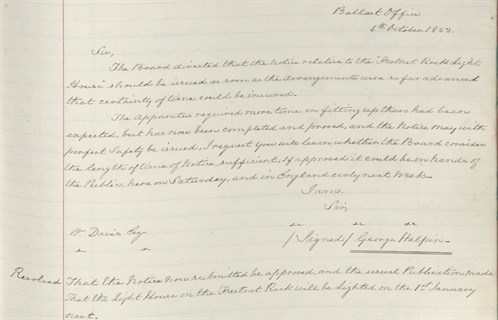 Ballast Office
6th October 1853
Sir,
The Board directed that the Notice relative to the "Fastnet Rock Light
House" should be issued as soon as the arrangements were so far advanced
that certainty of time could be insured.
The Apparatus required more time in fitting up than had been
expected, but has now been completed and proved, and the Notice may with
perfect Safety be issued, I request you will learn whether the Board consider
the length of time of Notice sufficient, if approved it could be in hands of
the Public, here on Saturday, and in England early next Week.
I am
Sir,
W. Davis Esq
/Signed/ George Halpin
Resolved That the Notice now submitted be approved, and the usual Publication made
That the Light House on the Fastnet Rock will be lighted on the 1st January
next.